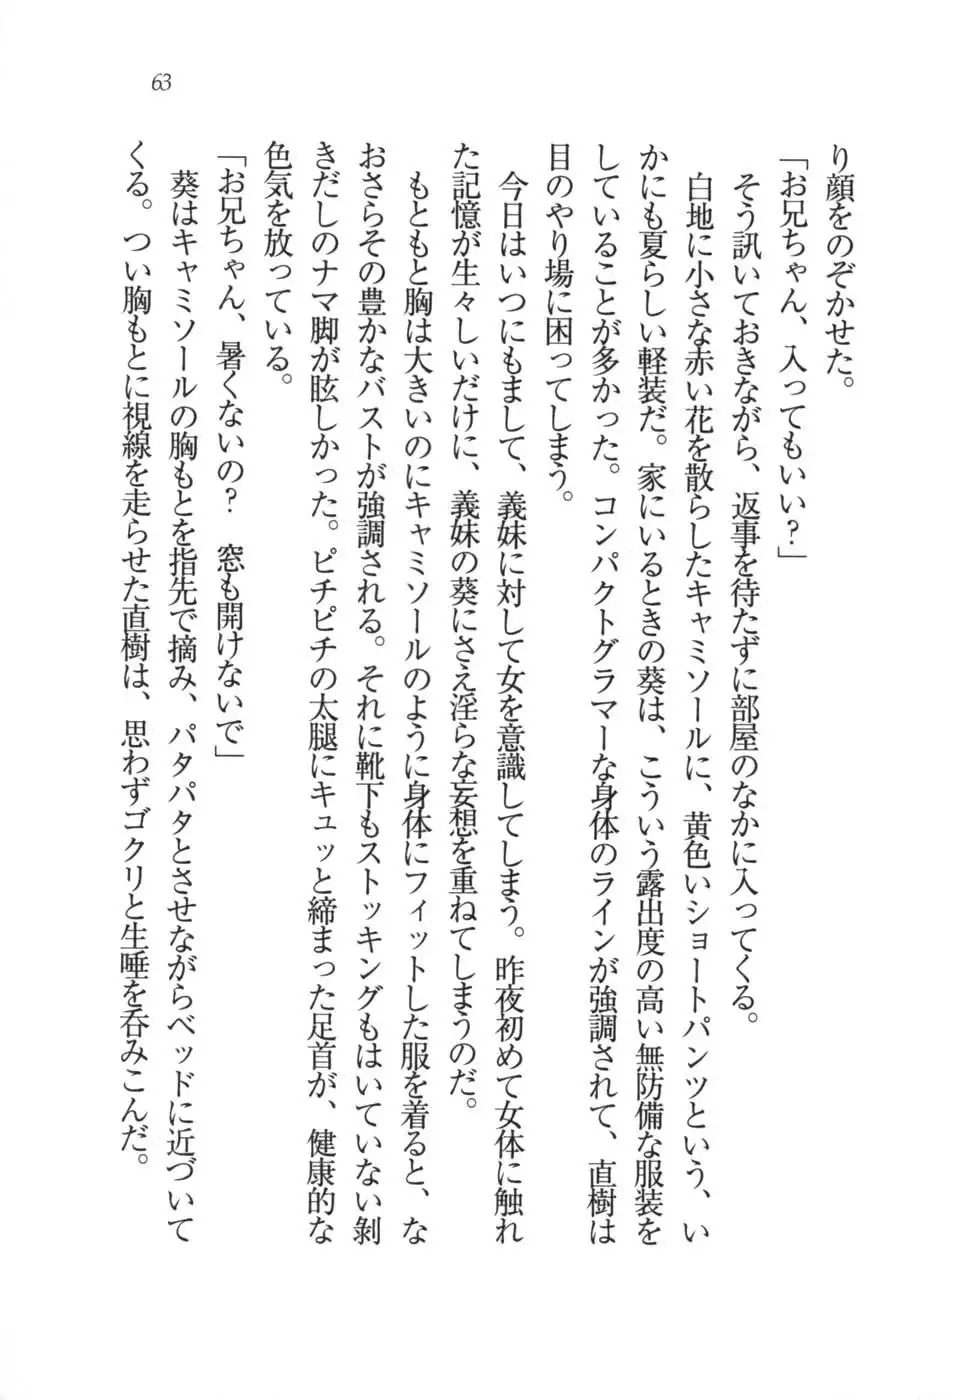 63
り顔をのぞかせた。
「お兄ちゃん、入ってもいい？」
そう訊いておきながら、返事を待たずに部屋のなかに入ってくる。
白地に小さな赤い花を散らしたキャミソールに、黄色いショートパンツという、い
かにも夏らしい軽装だ。家にいるときの葵は、こういう露出度の高い無防備な服装を
していることが多かった。コンパクトグラマーな身体のラインが強調されて、直樹は
目のやり場に困ってしまう。
今日はいつにもまして、義妹に対して女を意識してしまう。昨夜初めて女体に触れ
た記憶が生々しいだけに、義妹の葵にさえ淫らな妄想を重ねてしまうのだ。
もともと胸は大きいのにキャミソールのように身体にフィットした服を着ると、な
おさらその豊かなバストが強調される。それに靴下もストッキングもはいていない剝
きだしのナマ脚が眩しかった。ピチピチの太腿にキュッと締まった足首が、健康的な
色気を放っている。
「お兄ちゃん、暑くないの？　窓も開けないで」
葵はキャミソールの胸もとを指先で摘み、パタパタとさせながらベッドに近づいて
くる。つい胸もとに視線を走らせた直樹は、思わずゴクリと生唾を呑みこんだ。